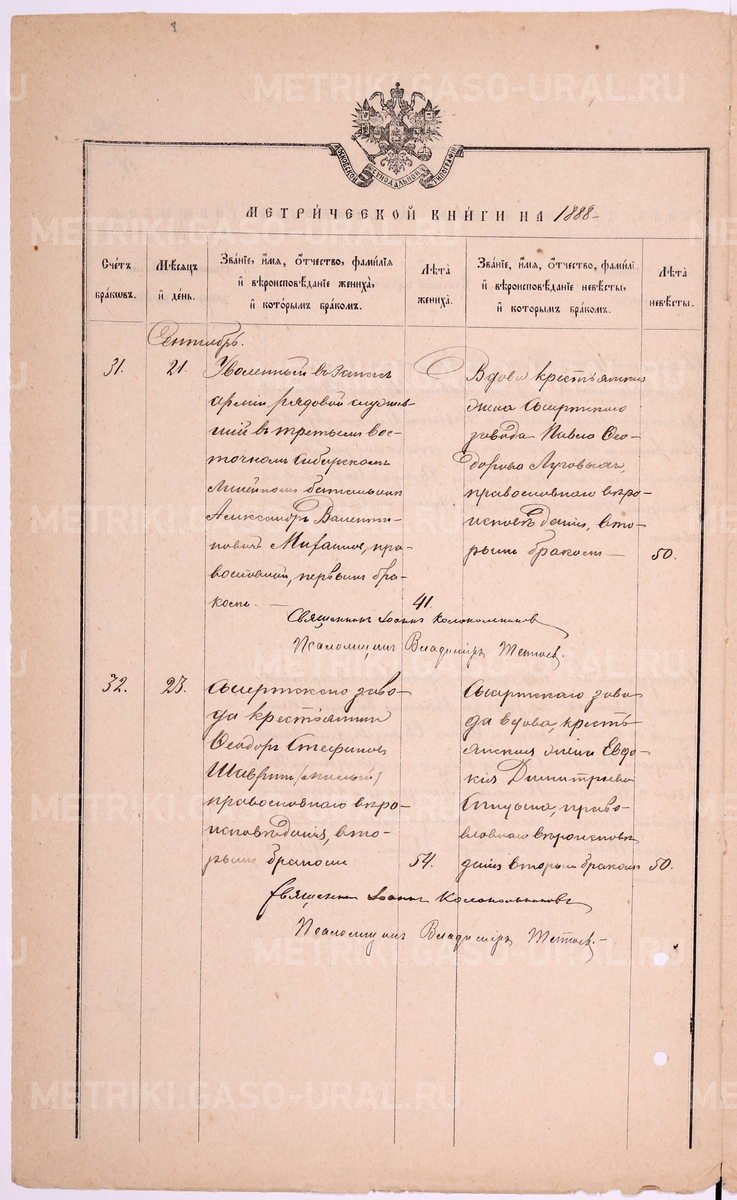 МЕТРИ́ЧЕСКОЙ КНИ́ГИ НА 1888
Счетъ браковъ.
Мѣсяцъ и день.
Зва́нїе, и́мя, ѻ҆́тчество, фами́лїя и вѣроисповѣ́данїе жениха́, и кото́рымъ бра́комъ.
Лѣ́та жениха́.
Зва́нїе, и́мя, ѻ҆́тчество, фами́лї и вѣроисповѣ́данїе невѣ́сты, и кото́рымъ бра́комъ.
Лѣ́та невѣ́сты.
Сентябрь.
31.
21.
Уволенный въ запасъ
арміи рядовой служив
шій въ третьемъ Вос-
точномъ Сибирскомъ
Линейномъ баталіонѣ
Александръ Валенти-
новичъ пра-
вославный, первымъ бра-
комъ.
41.
Вдова крестьянская
жена Сысертскаго
завода Ѳео-
дорова Луговыхъ,
православнаго вѣро-
исповѣданія, вто-
рымъ бракомъ
50.
Священникъ Іоаннъ Колокольниковъ
Псаломщикъ Владиміръ
32.
23.
Сысертскаго заво-
да крестьянинъ
Ѳеодоръ Стефановъ
православнаго вѣро-
исповѣданія, вто-
рымъ бракомъ
54.
Сысертскаго заво
да вдова, кресть
янская жена Евдо-
кія Димитріева
право-
славнаго вѣроисповѣ
данія вторымъ бракомъ
50.
Священникъ Іоаннъ Колокольниковъ
Псаломщикъ Владиміръ
METRIKI.GASO-URAL.RU